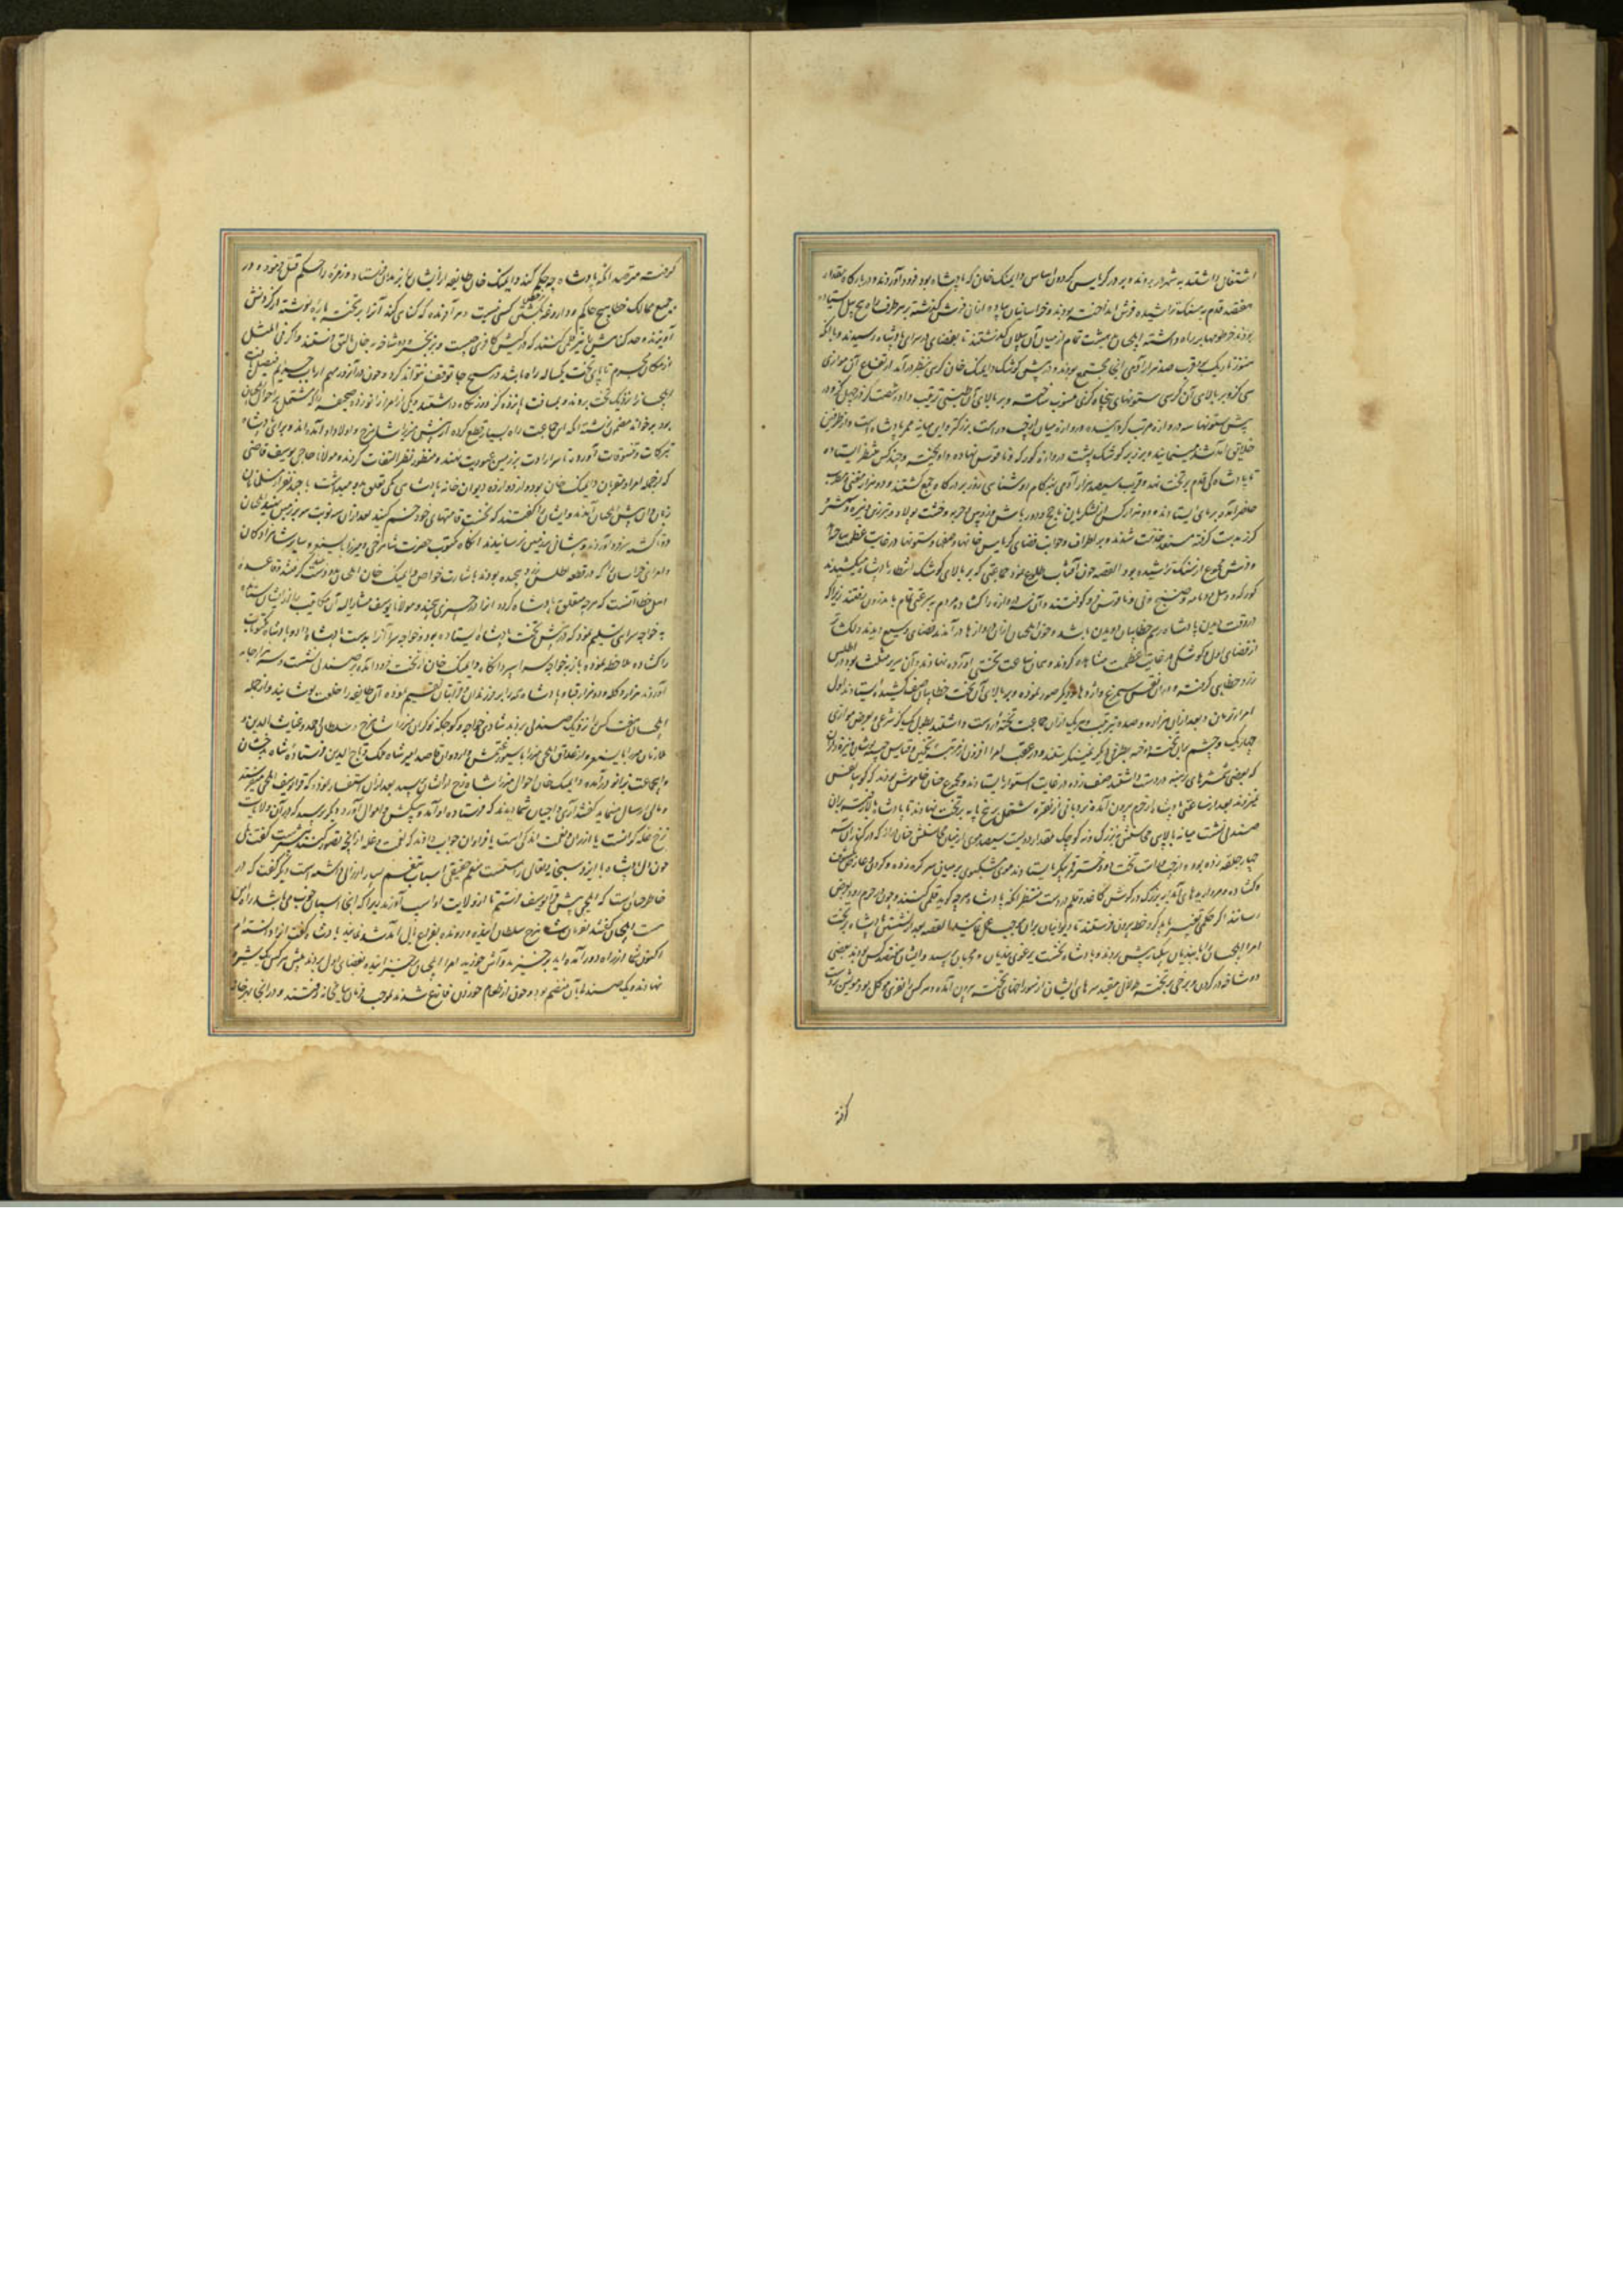 اشتغال داشتند به شهر در بردند و بر در کریاس گردون اساس دایمنک خان که پادشاه بود فرود آوردند و در بارگاه مقدار
هفتصد قدم به سنگ تراشیده فرش انداخته بودند و خراسانیان پیاده از آن فرش گذشته بر هر طرف راه پنج پیل ایستاده
بودند خرطومها بر راه داشته ایلچیان تمام از میان آن پیلان گذشتند تا بفضای در سرای پادشاه رسیدند و با آنکه
هنوز تاریک بود قرب صد هزار آدمی آنجا مجتمع بودند و در پیش کوشک دایمنک خان کرسی بنظر درآمد ارتفاع آن موازی
سی گز و بر بالای آن کرسی ستونهای پنجاه گزی منصوب ساخته و بر بالای آن طنبی ترتیب داده شصت گز در چهل گز و در
پیش ستونها سه دروازه مرتب گردانیده دروازه میان از چپ و راست بزرگتر و این میانه ممر پادشاه است و از طرفین
خلایق آمد شد می‌نمایند و بر زبر کوشک پشت دروازه کورکه و ناقوس نهاده و آویخته و چند کس منتظر ایستاده
تا پادشاه کی قدم بر تخت نهد و قریب سیصد هزار آدمی هنگام روشنایی روز بر درگاه جمع گشتند و دو هزار مغنی و مطرب
حاضر آمده بر پای ایستادند و دو هزار کس از لشکریان ناچخ و دورباش و زوپین و حربه و خشت پولاد و تبرزین و نیزه و شمشیر
گرز بدست گرفته مستعد خدمت شدند و بر اطراف و جوانب فضای کریاس خانها و صفها و ستونها در غایت عظمت ساخته
و فرش مجموع از سنگ تراشیده بود القصه چون آفتاب طلوع نمود جماعتی که بر بالای کوشک انتظار پادشاه میکشیدند
کورکه و دهل و دمامه و صنج و نی و ناقوس فرو کوفتند و آن سه دروازه را گشاده مردم بسرعتی تمام باندرون رفتند زیرا که
در وقت دیدن پادشاه رسم خطاییان دویدن باشد و چون ایلچیان از آن دروازها درآمدند فضای وسیع دیدند دلگشاتر
از فضای اول و کوشکی در غایت عظمت مشاهده کردند و همان ساعت تختی آورده نهادند و آن سریر مثلث بود در اطلس
زرد خطایی گرفته و در آن نقش سیمرغ و اژدرها و دیگر صور نموده و بر بالای آن تخت خطاییان صف کشیده ایستادند اول
امراء تومان و بعد از آن هزاره و صده بترتیب و هر یک از آن جماعت تخته در دست داشتند بطول یک گز شرعی و بعرض موازی
چهار یک و چشم بدان تخته دوخته بطرفی دیگر نمینگریستند و در عقب امرا افزون از مرتبه تخمین و قیاس جیبه‌پوشان و نیزه‌داران
که بعضی شمشیرهای برهنه در دست داشتند صف زده در غایت استوار ایستادند و مجموع چنان خاموش بودند که گویا نفس
نمیزدند بعد از ساعتی پادشاه از حرم بیرون آمده نردبانی از نقره مشتمل بر پنج پایه بر تخت نهادند تا پادشاه بالا رفت بر آن
صندلی نشست میانه بالایی محاسنش نه بزرگ و نه کوچک مقدار دویست سیصد موی از میان محاسنش چنان دراز که در کنار او سه
چهار حلقه زده بود و از چپ و راست تخت دو دختر قمر پیکر ایستاده موی مشکبوی بر میان سر گره زده و گردن و عارض مکشوف
گشاده و مرواریدهای آبدار بزرگ در گوش کاغذ و قلم در دست منتظر آنکه پادشاه هر چه گوید قلمی کنند و چون بحرم رود بعرض
رسانند اگر حکمی تغییر باید کرد خط بیرون فرستند تا دیوانیان بر آن موجب عمل نمایند القصه بعد از نشستن پادشاه بر تخت
امرا ایلچیان را با بندیان بیکبار پیش بردند و پادشاه نخست برغوی بندیان و مجرمان پرسید و ایشان هفتصد کس بودند بعضی
دوشاخه در گردن و برخی بر تخته طولانی مقید سرهای ایشان از سوراخهای تخته بیرون آمده و هر کس را نفری موکل بود مویش بدست
گرفته
گرفته مترصد آنکه پادشاه چه حکم کند دایمنک خان طایفه از ایشان را بزندان فرستاد و زمره را حکم قتل فرمود و در
جمیع ممالک خطا هیچ حاکم و داروغه را حکم کشتن کسی نیست و هر آفریده که گناهی کند آنرا بر تخته پاره نوشته در گردنش
آویزند و حد گناهش را نیز قلمی کنند که در کیش کافری چیست و بزنجیر و دوشاخه به خان بالق فرستند و اگر فی المثل
از مکان مجرم تا پای تخت یکساله راه باشد در هیچ جا توقف نتواند کرد و چون در آن روز مهم ارباب جرایم فیصل یافت
ایلچیانرا نزدیک تخت بردند و بمسافت پانزده گز دور نگاه داشتند و یکی از امرا زانو زده صحیفه را که مشتمل بر احوال ایلچیان
بود برخواند مضمون نوشته آنکه این جماعت راه بسیار قطع کرده از پیش میرزا شاهرخ و اولاد او آمده‌اند و برای پادشاه
تبرکات و تنسوقات آورده تا سر ارادت بر زمین عبودیت نهند و منظور نظر التفات گردند و مولانا حاجی یوسف قاضی
که از جمله امرا و مقربان دایمنک خان بود و از دوازده دیوان خانه پادشاهی یکی تعلق بدو میداشت با چند نفر از مسلمانان
زبان‌دان پیش ایلچیان آمدند و ایشان را گفتند که نخست قامتهای خود خم کنید بعد از آن سه نوبت سر بر زمین نهید ایلچیان
دوتا گشته سر فرود آوردند و پیشانی بزمین نرسانیدند آنگاه مکتوب حضرت شاهرخی و میرزا بایسنغر و سایر شاهزادگان
و امرای خراسان را که در قطعه اطلس زرد پیچیده بودند باشارت خواص دایمنک خان ایلچیان بدو دست گرفتند و قاعده
اهل خطا آنست که هر چه متعلق بپادشاه گردد آنرا در چیزی پیچند و مولانا یوسف مشار الیه آن مکاتیب را از ایشان ستانده
به خواجه سرای تسلیم نمود که در پیش تخت پادشاه ایستاده بود و خواجه سرا آنرا بدست پادشاه داد و پادشاه مکتوبات
را گشاده ملاحظه نموده باز بخواجه سرا سپرد آنگاه دایمنک خان از تخت فرود آمده بر صندلی نشست و سه هزار جامه
آوردند هزار دگله و دو هزار قبا و پادشاه همه را بر فرزندان و قرابتان تقسیم نموده آن طایفه را خلعت پوشانیدند و از جمله
ایلچیان هفت کس را نزدیک صندلی بردند شادی خواجه و کوکجه نوکران میرزا شاهرخ و سلطان احمد و غیاث الدین
ملازمان میرزا بایسنغر و ارغداق ایلچی میرزا سیورغتمش و اردوان قاصد امیر شاه ملک و تاج الدین فرستاده شاه بدخشان
و این جماعت بزانو درآمده دایمنک خان احوال میرزا شاهرخ از ایشان پرسید بعد از آن استفسار نمود که قرا یوسف ایلچی میفرستد
و مال ارسال مینماید گفتند آری و ایلچیان شما دیدند که فرستاده او آمد و پیشکش و اموال آورد دیگر پرسید که در آن ولایت
نرخ غله گرانست یا ارزان و نعمت اندکست یا فراوان جواب دادند که نعمت و غله از آنچه تصور کنند بیشتر است گفت بلی
چون دل پادشاه با ایزد سبحانه و تعالی راستست منعم حقیقی اسباب تنعم بسیار ارزانی داشته است دیگر گفت که در
خاطر چنانست که ایلچی پیش قرا یوسف فرستم تا از ولایت او اسب آورند زیرا که آنجا اسپان خوب می‌باشد راه ایمن
هست ایلچیان گفتند بفرمان شاهرخ سلطان آینده و رونده بفراغ بال آمد شد نمایند پادشاه گفت آنرا دانسته‌ام
اکنون شما از راه دور آمده‌اید برخیزید و آش خورید امرا ایلچیان را برخیزانیده بفضای اول بردند پیش هر کس یک شیره
نهادند و یک صندلی بآن منضم بود و چون از طعام خوردن فارغ شدند بموجب فرمان بیامخانه رفتند و در آنجا بهر خانه